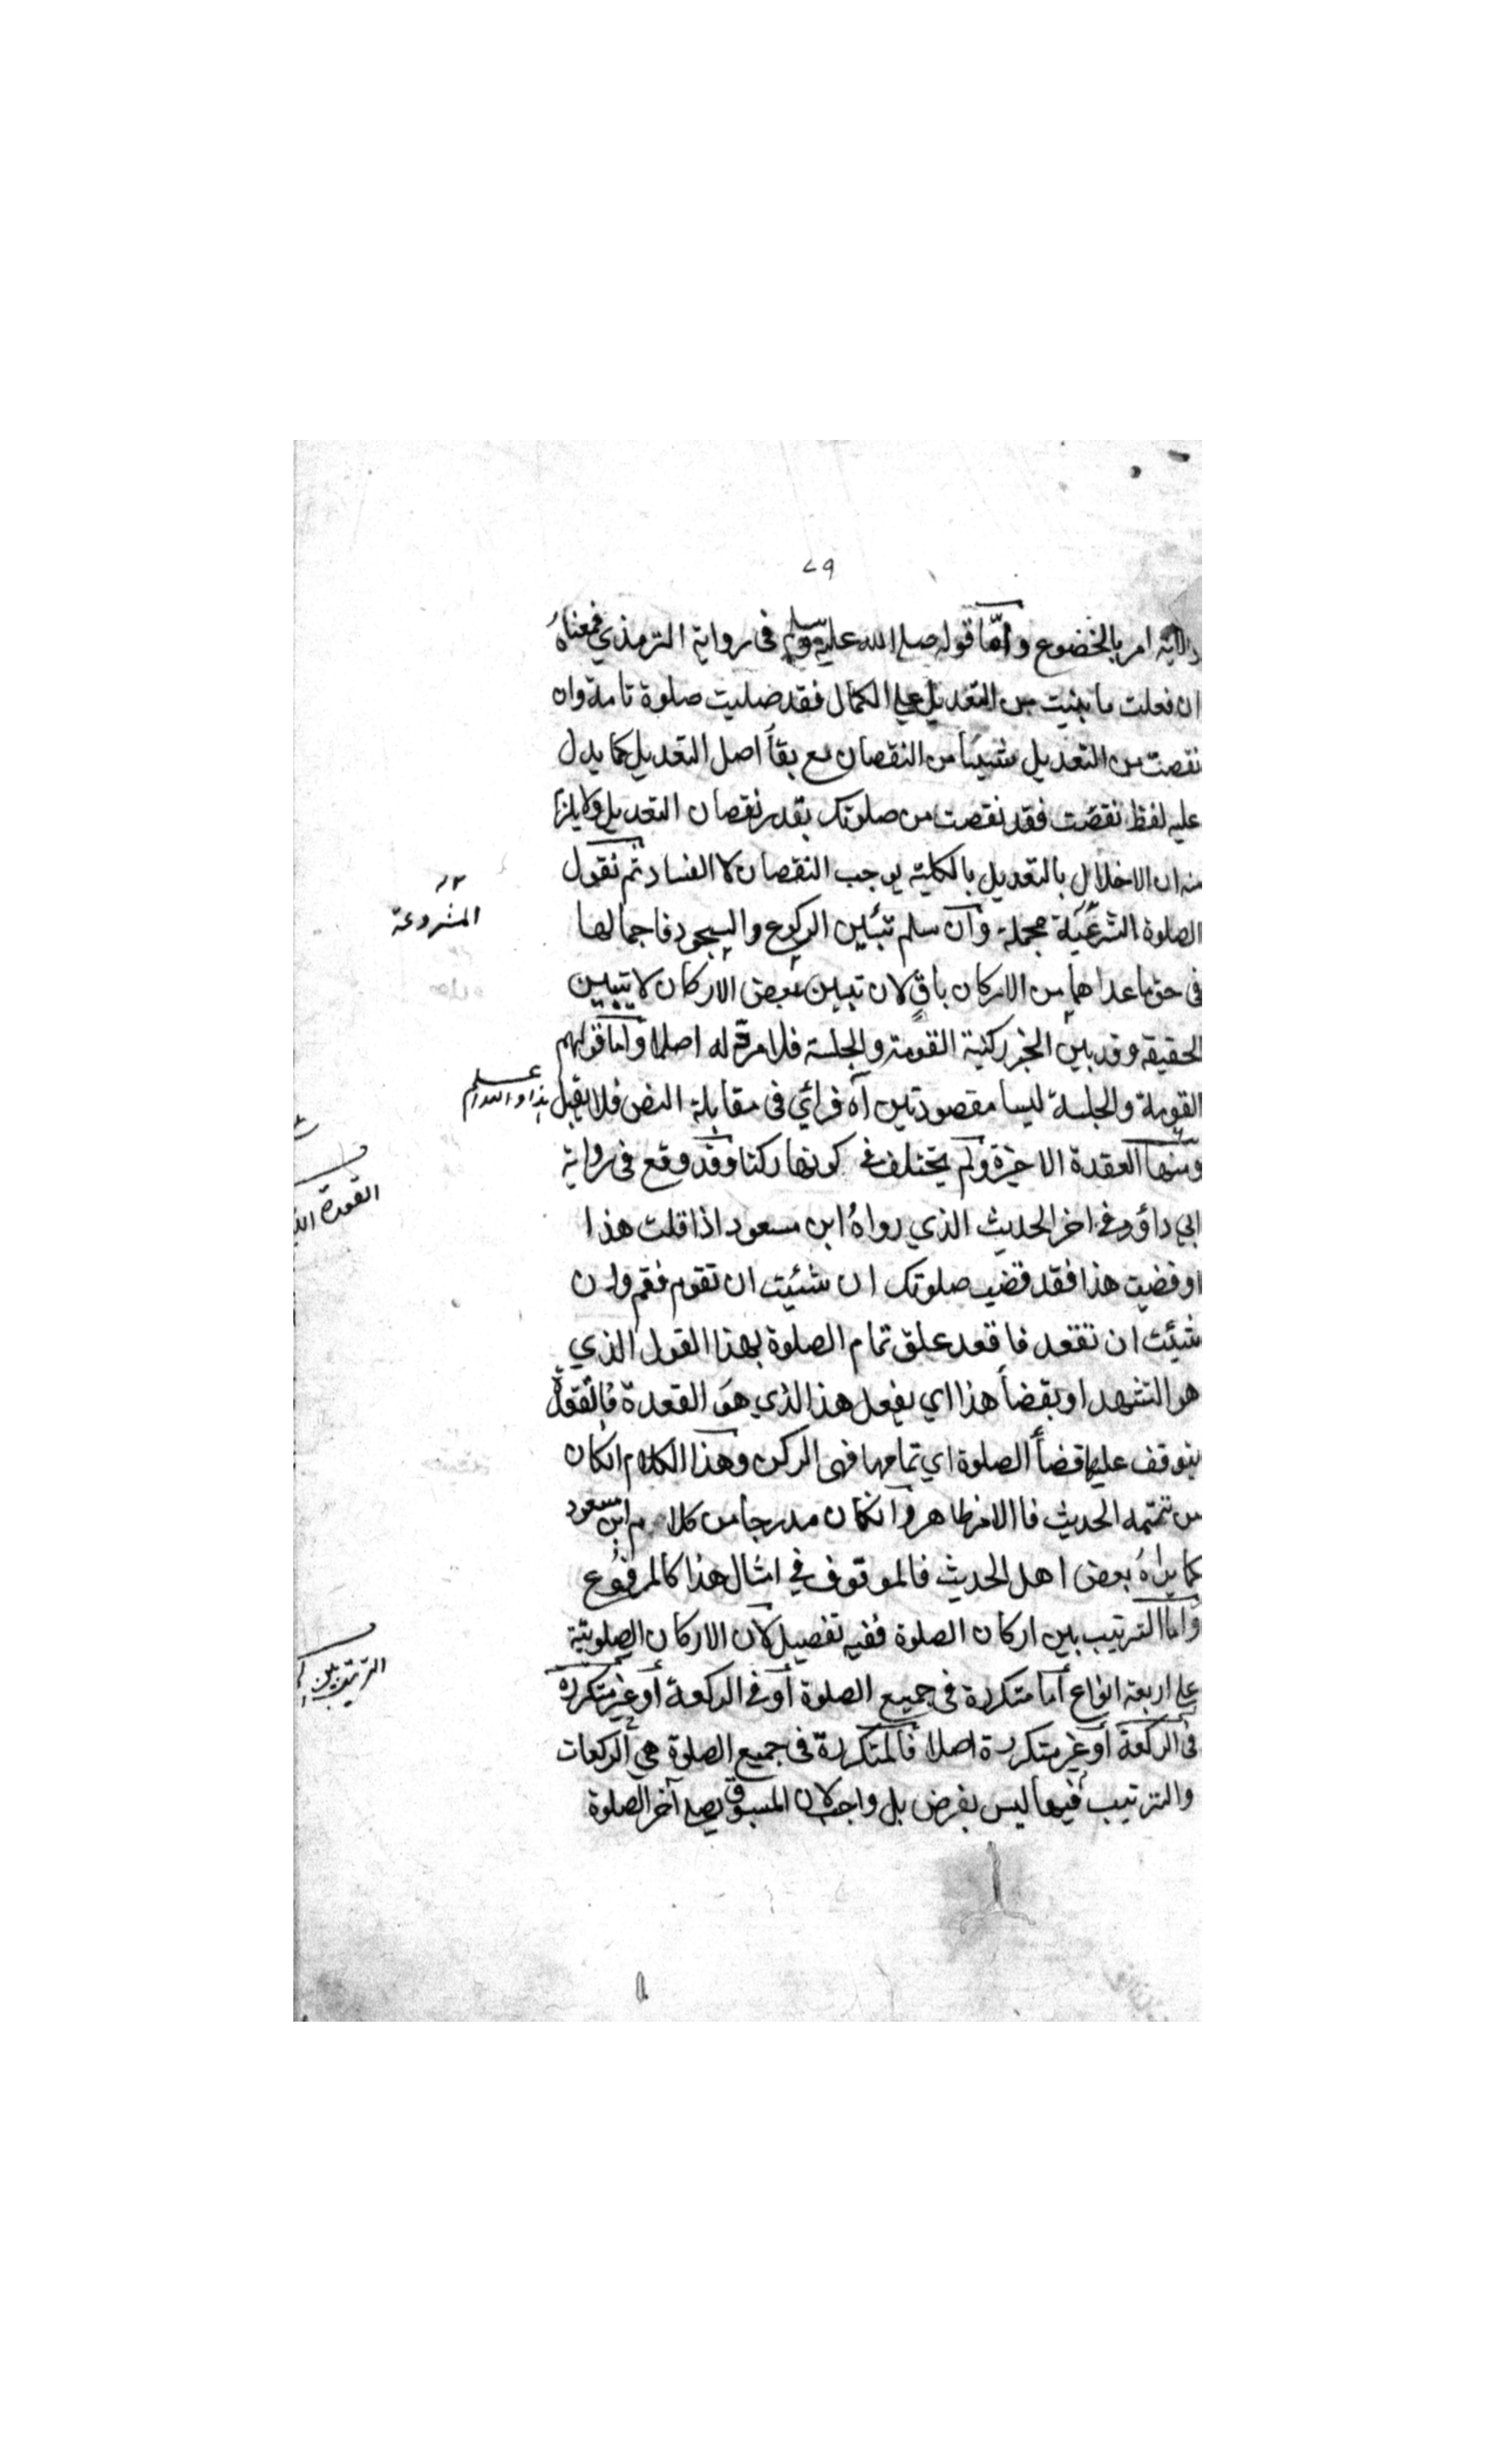 ٧٩
والآية امر بالخضوع وأمّا قوله صلى الله عليه وسلم فى رواية الترمذي فمعناهُ
ان فعلت ما بينيت من التعديل على الكمال فقد صليت صلوة تامة وان
نقصت من التعديل شيئا من النقصان مع بقأ اصل التعديل كما يدل
عليه لفظ نقصت فقد نقصت من صلوتك بقدر نقصان التعديل ولا يلزم
منه ان الاخلال بالتعديل بالكلية يوجب النقصان لا الفساد ثم نقول
الصلوة الشرعيّة مجملة وان سلم تبين الركوع والسجود فاجمالها
المشروعة
فى حق ما عداهما من الاركان باق لان تبيين بعض الاركان لا تبيين
الحقيقه وقد بين الخبر ركنية القومة والجلسة فلا مردّ له اصلا واما قولهم
القومة والجلسة ليسا مقصودتين آه فرائي فى مقابلة النص فلا يقبل
هذا والله اعلم
ومنها القعدة الاخيرة ولم يختلف فى كونها ركنا وقد وقع فى رواية
القعدة
ابي داؤد فى اخر الحديث الذي رواهُ ابن مسعود اذا قلت هذا
او قضيت هذا فقد قضيت صلوتك ان شئيت ان تقوم فقم وان
شيئت ان تقعد فاقعد علق تمام الصلوة بهذا القول الذي
هو التشهد او بقضأ هذا اي بفعل هذا الذي هو القعدة فالقعدة
يتوقف عليها قضأ الصلوة اي تمامها فهى الركن وهذا الكلام انكان
من تتمه الحديث فاالامر ظاهر وانكان مدرجا من كلام ابن مسعود
كما يراهُ بعض اهل الحديث فالموقوف في امثال هذا كالمرفوع
واما الترتيب بين اركان الصلوة ففيه تفصيل لان الاركان الصلوتية
الترتيب بين
على اربعة انواع أما متكررة فى جميع الصلوة أو فى الركعة أو غير متكررة
فى الركعة أو غير متكررة اصلا فالمتكررة فى جميع الصلوة هي الركعات
والترتيب فيها ليس بفرض بل واجب لان المسبوق يصلى آخر الصلوة